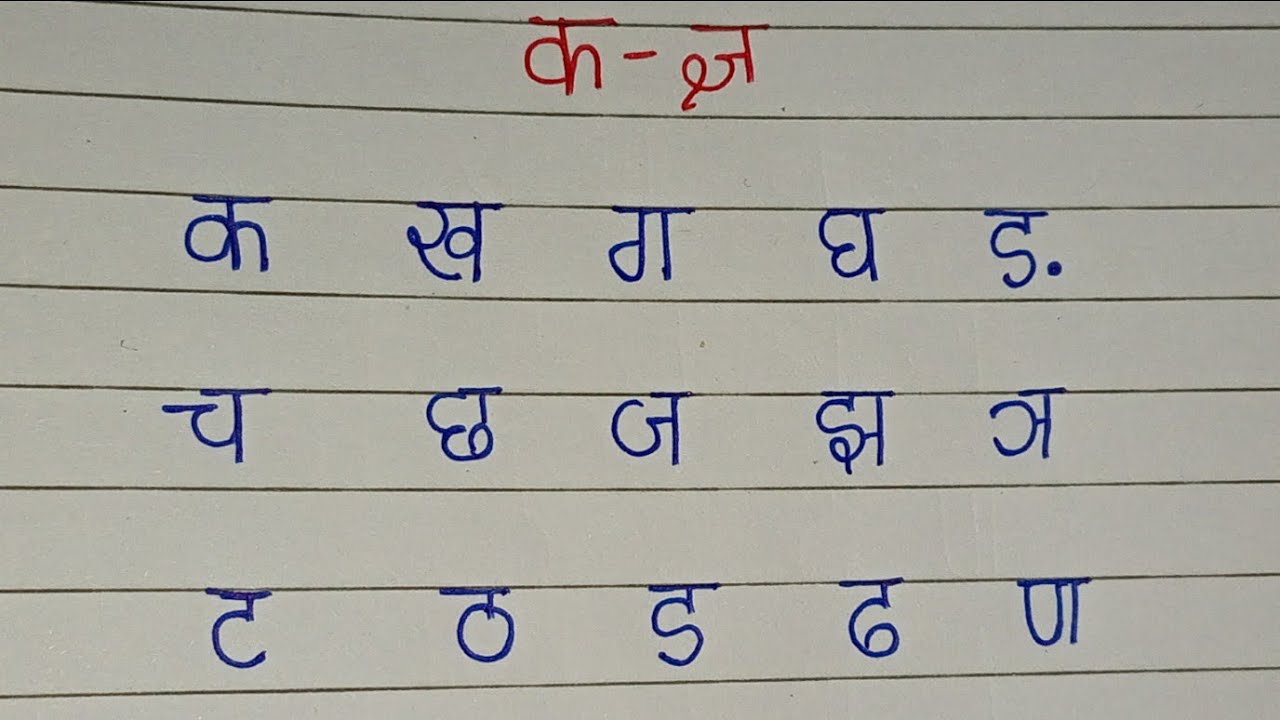 क - ज्ञ
क ख ग घ ङ
च छ ज झ ञ
ट ठ ड ढ ण